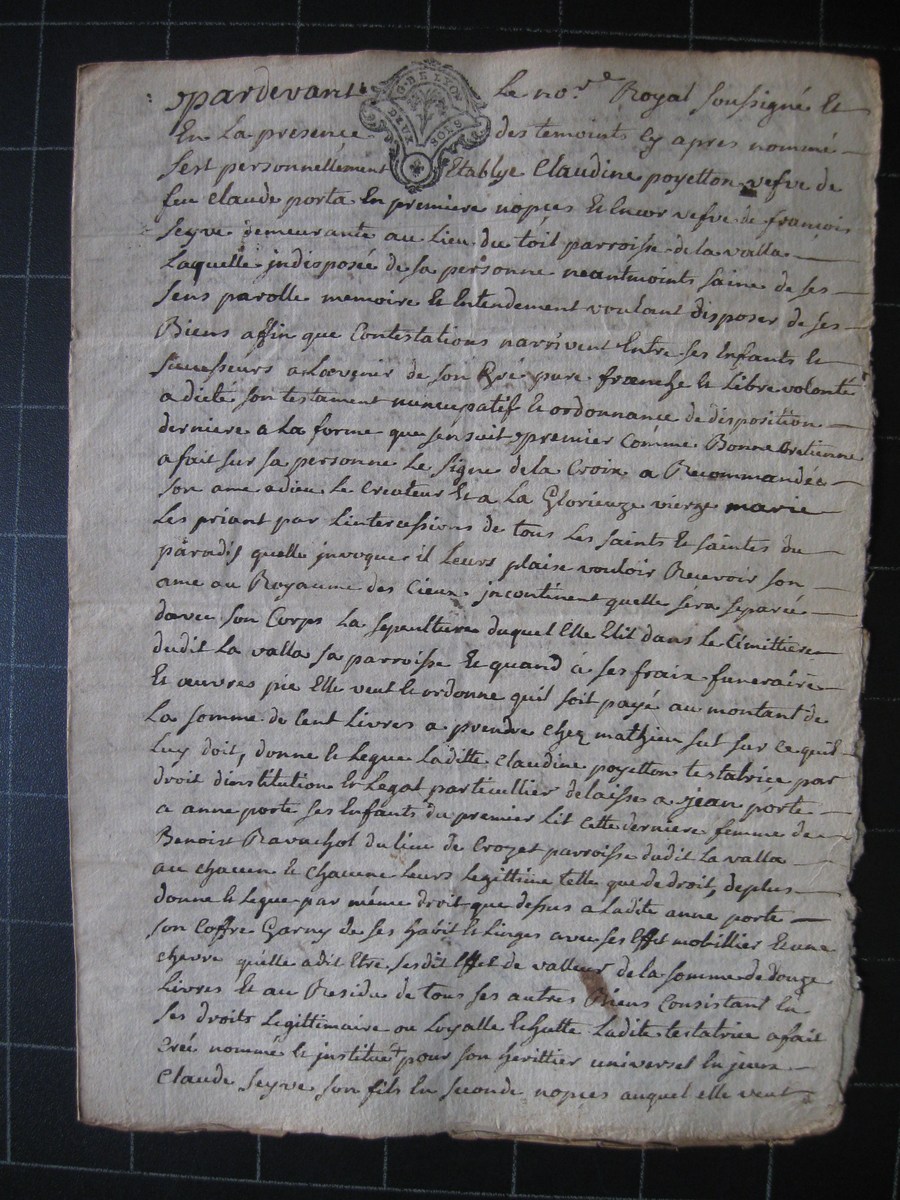 pardevant Le no.re Royal soussigné Et
G. DE LYON
DEUX SOLS
En La presence des temoints Cy apres nommé
sest personnellement Etablye Claudine poyetton vefve de
feu Claude porta En premiere nopces Et Encor vefve de françois
seyve demeurante au Lieu du toit parroisse de la valla
Laquelle jndisposée de sa personne neantmoints saine de ses
sens parolle memoire Et Entendement voulant disposer de ses
Biens affin que Contestations narrivent Entre ses Enfants Et
suecesseurs a Lavenir de son Gré pure franche et Libre volonté
a dicté son testament nuncupatif Et ordonnance de disposition
derniere a La forme que sensuit premier Comme Bonne Cretienne
a fait sur sa personne Le signe de la Croix a Recommandée
son ame a dieu Le Createur Et a La Glorieuze vierge marie
Les priant par Lintercessions de tous Les saints Et saintes du
paradis quelle jnvoque il Leurs plaise vouloir Recevoir son
ame au Royaume des Cieux jncontinent quelle sera separée
davec son Corps La sepulture duquel Elle Elit dans Le Cimittiere
dudit La valla sa parroisse Et quand à ses fraix funeraire
Et œuvres pie Elle veut Et ordonne quil soit payé au montant de
La somme de Cent Livres a prendre chez mathieu sur ce quil
Luy doit, donne Et Legue Laditte Claudine poyetton testatrice par
droit dinstitution Et Legat particullier delaisse a jean porte
a anne porte ses Enfants du premier Lit Cette derniere femme de
Benoist Ravachol du lieu de Crozet parroisse dudit La valla
au chacun Et chacune Leurs Legittime telle que de droit, de plus
donne Et Legue par même droit que dessus a Ladite anne porte
son Coffre Garny de ses habit Et Linges avec ses Effet mobillier Et une
chevre quelle a dit Etre sesdit Effet de valleur de la somme de douze
Livres Et au Residu de tous ses autres Biens Consistant En
ses droits Legittimaire ou Ladite testatrice a fait
Créé nommé Et jnstitué pour son herittier universel
Claude seyve son fils En seconde nopces auquel elle veut